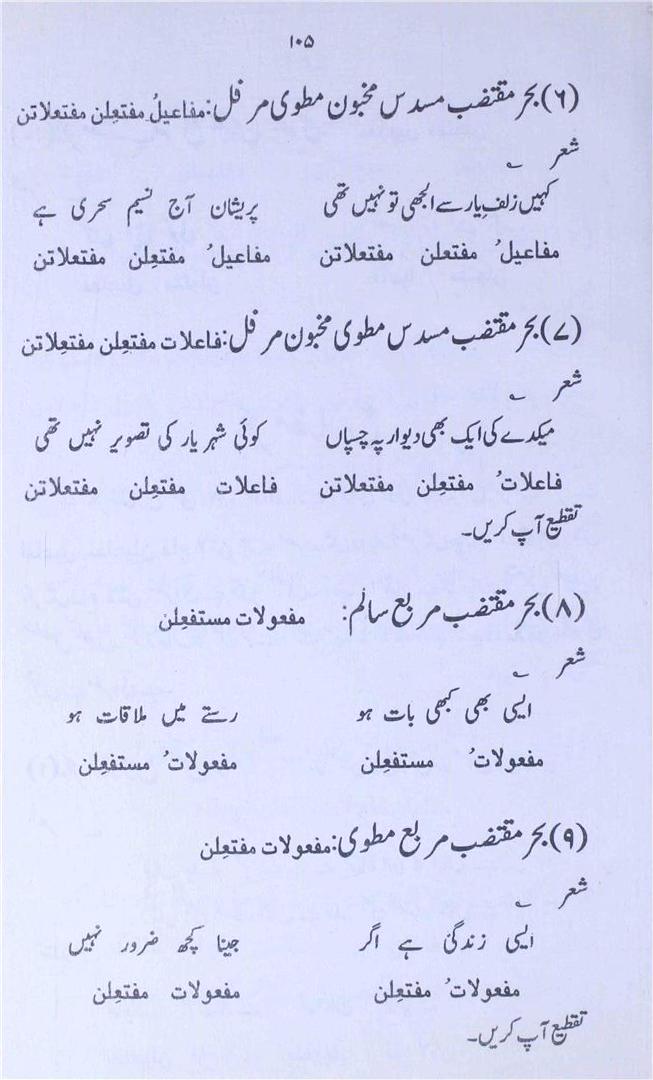 ۱۰۵
(۶) بحر مقتضب مسدس مخبون مطوی مرفل: مفاعیلُ مفتعِلن مفتعلاتن
شعر ؎
کہیں زلفِ یار سے الجھی تو نہیں تھی پریشان آج نسیم سحری ہے
مفاعیلُ مفتعلن مفتعلاتن مفاعیلُ مفتعِلن مفتعلاتن
(۷) بحر مقتضب مسدس مطوی مخبون مرفل: فاعلات مفتعِلن مفتعِلاتن
شعر ؎
میکدے کی ایک بھی دیوار پہ چسپاں کوئی شہر یار کی تصویر نہیں تھی
فاعلاتُ مفتعِلن مفتعلاتن فاعلات مفتعِلن مفتعلاتن
تقطیع آپ کریں۔
(۸) بحر مقتضب مربع سالم: مفعولات مستفعِلن
شعر ؎
ایسی بھی کبھی بات ہو رستے میں ملاقات ہو
مفعولاتُ مستفعِلن مفعولاتُ مستفعِلن
(۹) بحر مقتضب مربع مطوی: مفعولات مفتعِلن
شعر ؎
ایسی زندگیٔ ہے اگر جینا کچھ ضرور نہیں
مفعولاتُ مفتعِلن مفعولات مفتعِلن
تقطیع آپ کریں۔